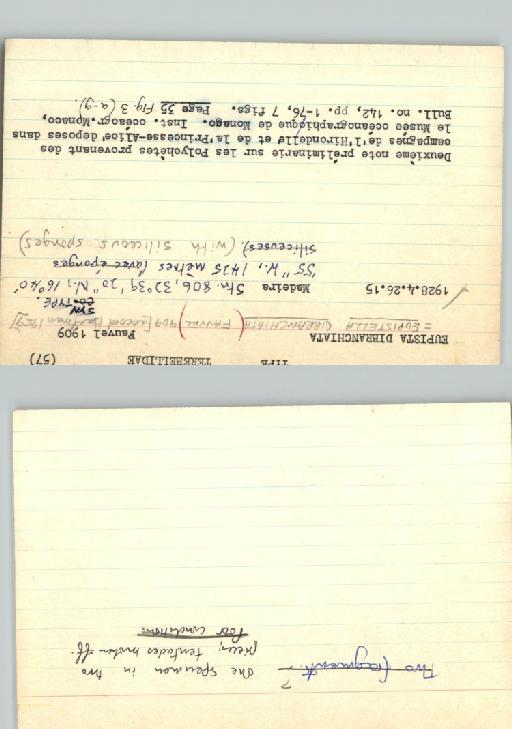 TYPE
TEREBELLIDAE (57)
EUPISTA DIBRANCHIATA Fauvel 1909
= EUPISTELLA DIBRANCHIATA (FAUVEL) 1909 [accord Hartman 1959]
SYN
CO-TYPE.
1928.4.26.15 Madeira Stn. 806, 32°39'20"N., 16°40'
55"W., 1425 mètres (avec éponges
siliceuses). (with siliceous sponges)
Deuxième note préliminarie sur les Polychètes provenant des
campagnes de l'Hirondelle et de la Princesse-Alice, deposes dans
le Musée océanographique de Monaco. Inst. océanogr. Monaco,
Bull. no. 142, pp. 1-76, 7 figs. Page 35 Fig. 3 (a-g).
Two fragments. ?
One specimen in two
pieces, tentacles broken off.
Poor condition.